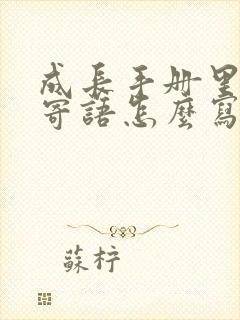 成長手册里
寄語怎麼寫
蘇柠